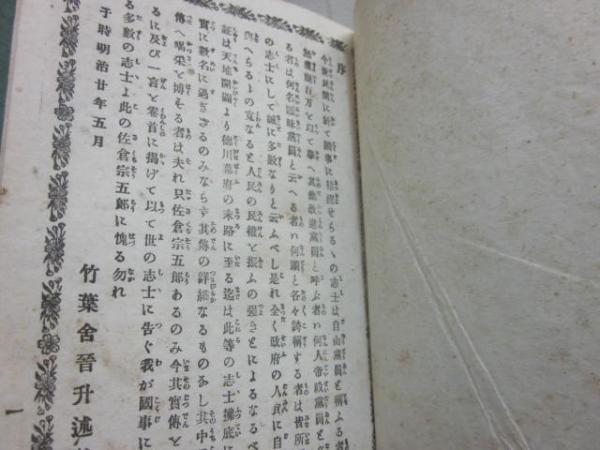 序
今世民間に於て國事に精神せらるゝの志士は自由黨員と稱ふる者
無慮數百万を以て算へ其他改進黨員と呼ぶ者何人帝政黨員と
る者は何名區々黨員と云へる者何頭と各々誇稱する者は皆所
の志士にして誠に多數なりと云ふべし是れ全く政府の人民に自
與へらるゝの寬なると人民の民權と振ふの强きとによるなるべ
証は天地開闢より德川幕府の末路に至る迄は此等の志士拂底に
實に數名に過ぎざるのみならず其傳の詳細なるものなし其中
傳へ喝采と博する者は夫れ只佐倉宗五郎あるのみ今其實傳と
るに及び一言と卷首に揭げて以て世の志士に告ぐ我が國事に
る多數の志士よ此の佐倉宗五郎に愧る勿れ
于時明治廿年五月
竹葉舍晉升述